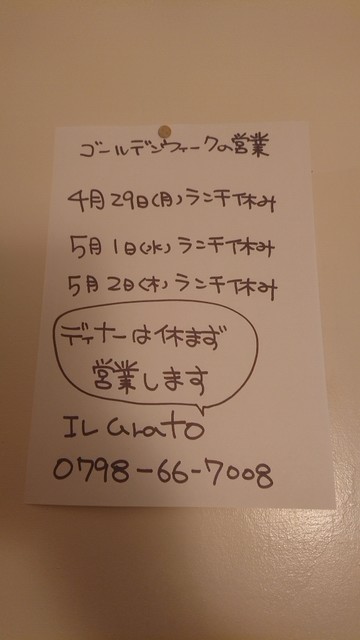 ゴールデンウィークの営業
4月29日(月)ランチ休み
5月1日(水)ランチ休み
5月2日(木)ランチ休み
ディナーは休まず
営業します
IL Grato
0798-66-7008